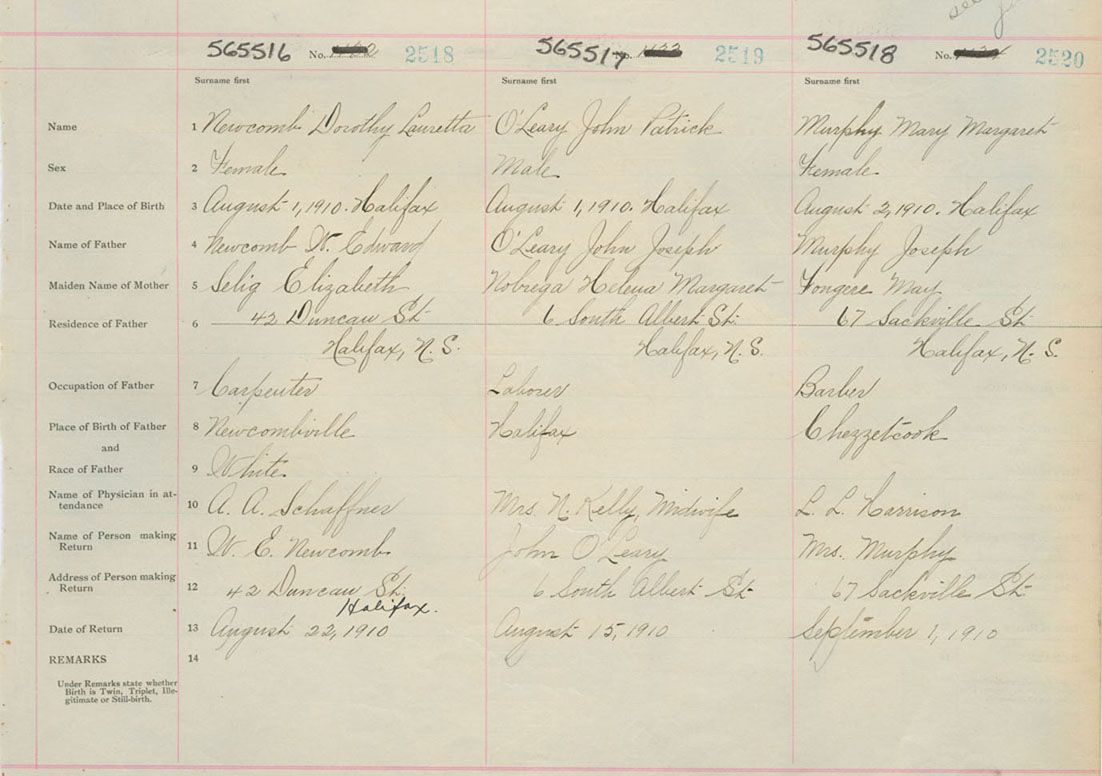 565516 No. 2518 565517 No. 2519 565518 No. 2520
Surname first Surname first Surname first
Name 1 Newcomb Dorothy Lauretta O'Leary John Patrick Murphy Mary Margaret
Sex 2 Female Male Female
Date and Place of Birth 3 August 1, 1910. Halifax August 1, 1910. Halifax August 2, 1910. Halifax
Name of Father 4 Newcomb W. Edward O'Leary John Joseph Murphy Joseph
Maiden Name of Mother 5 Selig Elizabeth Nobrega Helena Margaret Fougere May
Residence of Father 6 42 Duncan St. 6 South Albert St. 67 Sackville St.
Halifax, N.S. Halifax, N.S. Halifax, N.S.
Occupation of Father 7 Carpenter Laborer Barber
Place of Birth of Father 8 Newcombville Halifax Chezzetcook
and
Race of Father 9 White
Name of Physician in at-
tendance 10 A. A. Schaffner Mrs. N. Kelly, Midwife L. L. Harrison
Name of Person making
Return 11 W. E. Newcomb John O'Leary Mrs. Murphy
Address of Person making
Return 12 42 Duncan St. 6 South Albert St. 67 Sackville St.
Halifax.
Date of Return 13 August 22, 1910 August 15, 1910 September 1, 1910
REMARKS 14
Under Remarks state whether
Birth is Twin, Triplet, Ille-
gitimate or Still-birth.